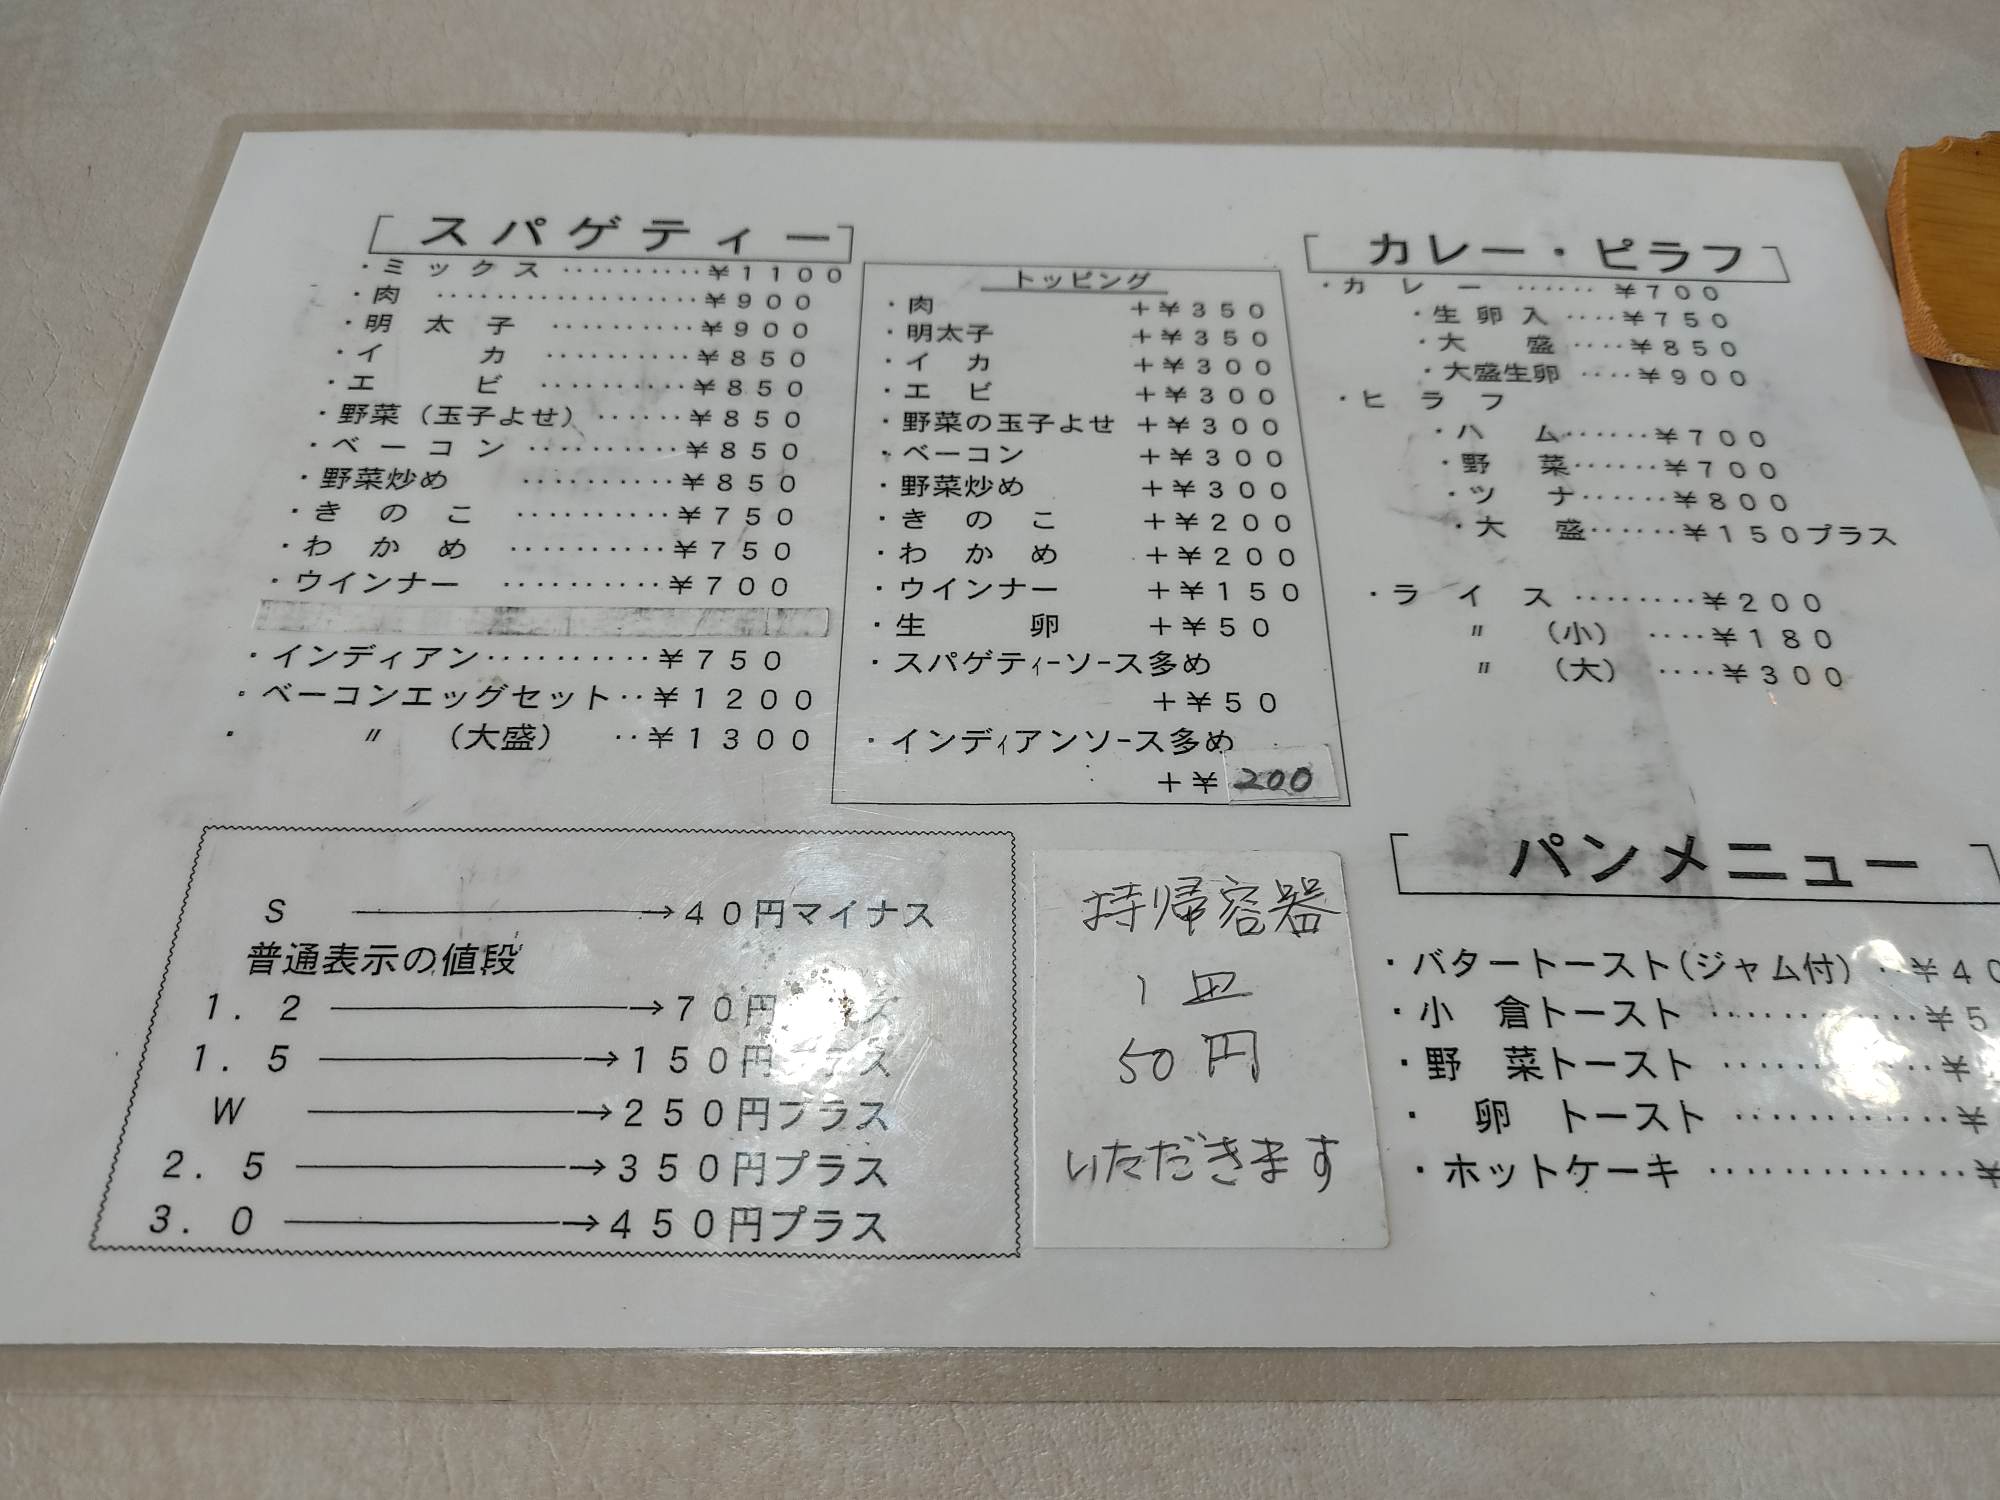 スパゲティー
・ミックス ‥‥‥‥‥¥1100
・肉 ‥‥‥‥‥‥‥‥‥¥900
・明太子 ‥‥‥‥‥¥900
・イカ ‥‥‥‥‥¥850
・エビ ‥‥‥‥‥¥850
・野菜（玉子よせ）‥‥‥¥850
・ベーコン ‥‥‥‥‥¥850
・野菜炒め ‥‥‥‥‥¥850
・きのこ ‥‥‥‥‥¥750
・わかめ ‥‥‥‥‥¥750
・ウインナー ‥‥‥‥‥¥700
・インディアン‥‥‥‥‥¥750
・ベーコンエッグセット‥¥1200
・〃（大盛） ‥¥1300
トッピング
・肉 +¥350
・明太子 +¥350
・イカ +¥300
・エビ +¥300
・野菜の玉子よせ +¥300
・ベーコン +¥300
・野菜炒め +¥300
・きのこ +¥200
・わかめ +¥200
・ウインナー +¥150
・生卵 +¥50
・スパゲティーソース多め
+¥50
・インディアンソース多め
+¥200
カレー・ピラフ
・カレー ‥‥‥ ¥700
・生卵入 ‥‥¥750
・大盛 ‥‥¥850
・大盛生卵 ‥‥¥900
・ピラフ
・ハム‥‥‥¥700
・野菜‥‥‥¥700
・ツナ‥‥‥¥800
・大盛‥‥‥¥150プラス
・ライス ‥‥‥‥¥200
〃（小） ‥‥¥180
〃（大） ‥‥¥300
S ───→40円マイナス
普通表示の値段
1.2 ───→70円
1.5 ───→150円
W ───→250円プラス
2.5 ───→350円プラス
3.0 ───→450円プラス
持帰容器
1皿
50円
いただきます
パンメニュー
・バタートースト（ジャム付）‥¥40
・小倉トースト ‥‥‥‥‥‥¥5
・野菜トースト ‥‥‥‥‥‥¥
・卵トースト ‥‥‥‥‥‥¥
・ホットケーキ ‥‥‥‥‥‥‥¥